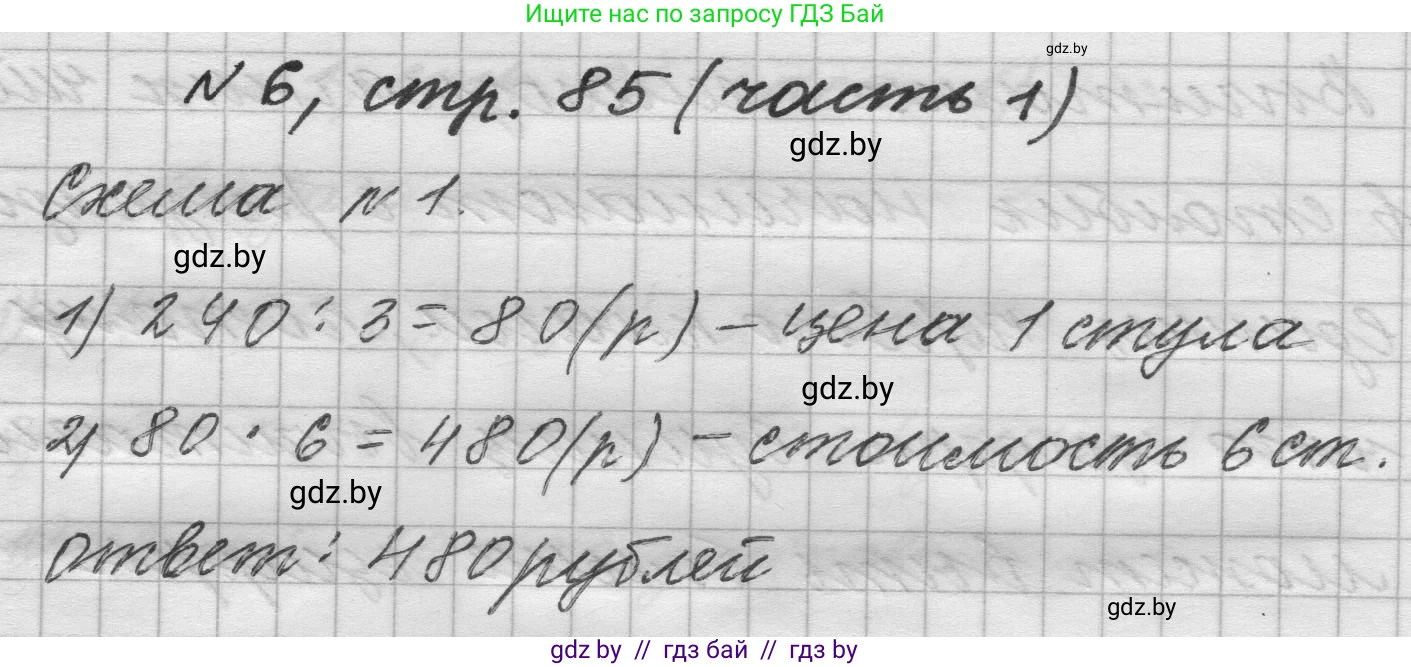 Ищите нас по запросу ГДЗ Бай
gdz.by
№ 6, стр. 85 (часть 1)
gdz.by
Схема № 1.
gdz.by
1) 240 : 3 = 80 (р) – цена 1 стула
gdz.by
2) 80 · 6 = 480 (р) – стоимость 6 ст.
gdz.by
ответ: 480 рублей
gdz.by
gdz by // гдз бай // гдз by